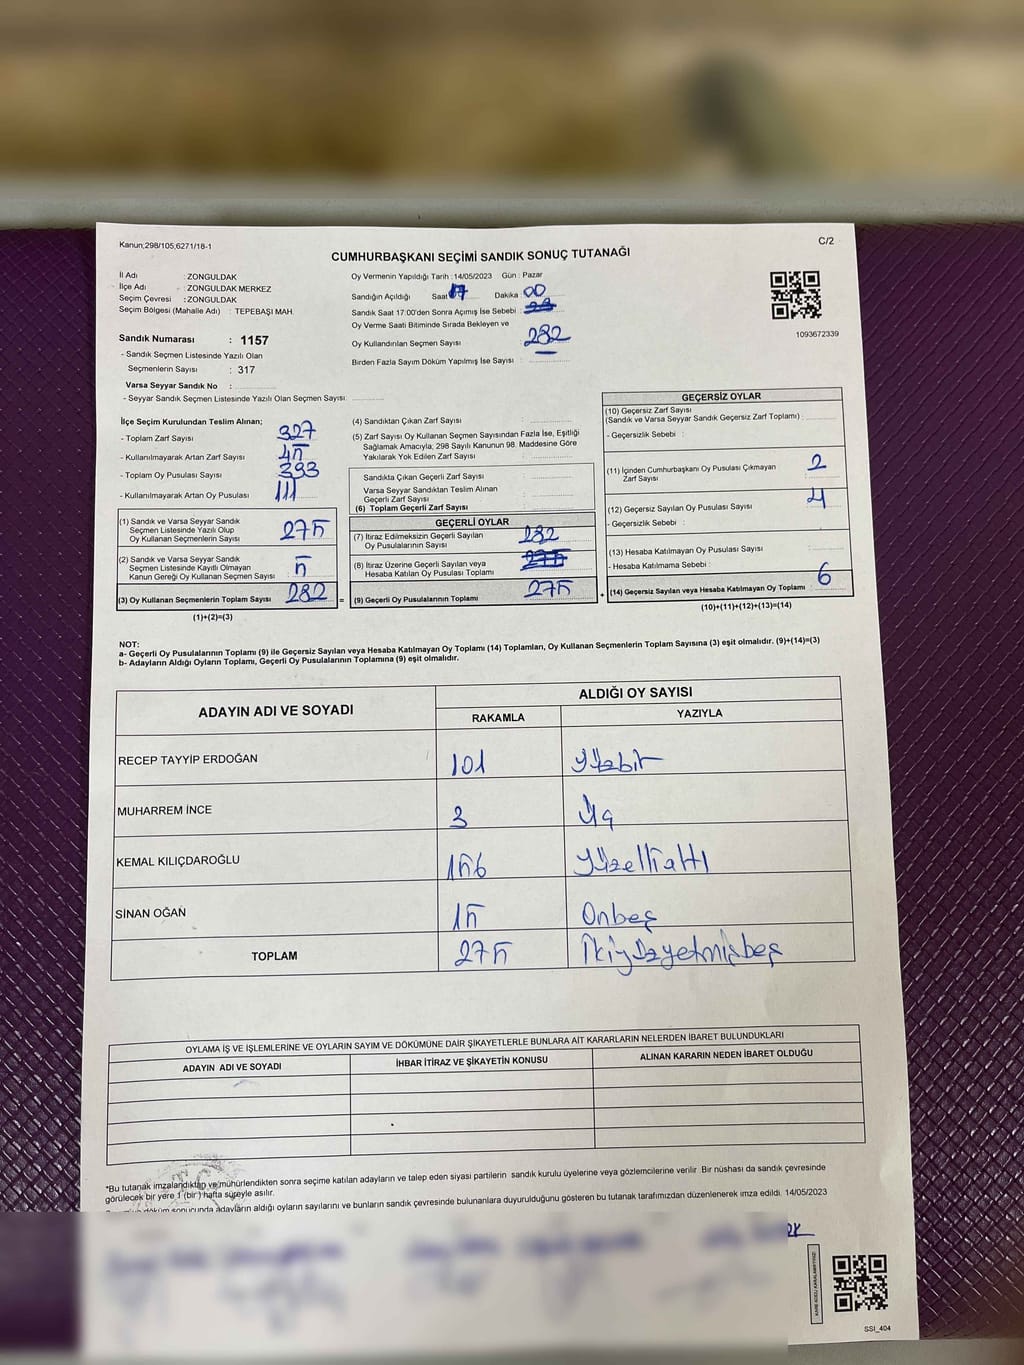 Kanun,298/105,6271/18-1
C/2
CUMHURBAŞKANI SEÇİMİ SANDIK SONUÇ TUTANAĞI
İl Adı : ZONGULDAK
İlçe Adı : ZONGULDAK MERKEZ
Seçim Çevresi : ZONGULDAK
Seçim Bölgesi (Mahalle Adı) : TEPEBAŞI MAH.
Sandık Numarası : 1157
- Sandık Seçmen Listesinde Yazılı Olan
Seçmenlerin Sayısı : 317
Varsa Seyyar Sandık No :
- Seyyar Sandık Seçmen Listesinde Yazılı Olan Seçmen Sayısı:
Oy Vermenin Yapıldığı Tarih : 14/05/2023 Gün : Pazar
Sandığın Açıldığı Saat 17 Dakika 00
Sandık Saat 17:00'den Sonra Açmış İse Sebebi :
Oy Verme Saati Bitiminde Sırada Bekleyen ve
Oy Kullandırılan Seçmen Sayısı 282
Birden Fazla Sayım Döküm Yapılmış İse Sayısı :
1093672339
İlçe Seçim Kurulundan Teslim Alınan;
- Toplam Zarf Sayısı 327
- Kullanılmayarak Artan Zarf Sayısı 45
- Toplam Oy Pusulası Sayısı 393
- Kullanılmayarak Artan Oy Pusulası 111
(1) Sandık ve Varsa Seyyar Sandık
Seçmen Listesinde Yazılı Olup
Oy Kullanan Seçmenlerin Sayısı 275
(2) Sandık ve Varsa Seyyar Sandık
Seçmen Listesinde Kayıtlı Olmayan
Kanun Gereği Oy Kullanan Seçmen Sayısı 5
(3) Oy Kullanan Seçmenlerin Toplam Sayısı 282 =
(1)+(2)=(3)
(4) Sandıktan Çıkan Zarf Sayısı :
(5) Zarf Sayısı Oy Kullanan Seçmen Sayısından Fazla İse, Eşitliği
Sağlamak Amacıyla; 298 Sayılı Kanunun 98. Maddesine Göre
Yakılarak Yok Edilen Zarf Sayısı :
Sandıkta Çıkan Geçerli Zarf Sayısı :
Varsa Seyyar Sandıktan Teslim Alınan
Geçerli Zarf Sayısı :
(6) Toplam Geçerli Zarf Sayısı
GEÇERLİ OYLAR
(7) İtiraz Edilmeksizin Geçerli Sayılan
Oy Pusulalarının Sayısı 282
(8) İtiraz Üzerine Geçerli Sayılan veya
Hesaba Katılan Oy Pusulası Toplamı 275
(9) Geçerli Oy Pusulalarının Toplamı 275 +
GEÇERSİZ OYLAR
(10) Geçersiz Zarf Sayısı
(Sandık ve Varsa Seyyar Sandık Geçersiz Zarf Toplamı) :
- Geçersizlik Sebebi :
(11) İçinden Cumhurbaşkanı Oy Pusulası Çıkmayan
Zarf Sayısı 2
(12) Geçersiz Sayılan Oy Pusulası Sayısı 4
- Geçersizlik Sebebi :
(13) Hesaba Katılmayan Oy Pusulası Sayısı
- Hesaba Katılmama Sebebi :
(14) Geçersiz Sayılan veya Hesaba Katılmayan Oy Toplamı 6
(10)+(11)+(12)+(13)=(14)
NOT:
a- Geçerli Oy Pusulalarının Toplamı (9) ile Geçersiz Sayılan veya Hesaba Katılmayan Oy Toplamı (14) Toplamları, Oy Kullanan Seçmenlerin Toplam Sayısına (3) eşit olmalıdır. (9)+(14)=(3)
b- Adayların Aldığı Oyların Toplamı, Geçerli Oy Pusulalarının Toplamına (9) eşit olmalıdır.
ADAYIN ADI VE SOYADI
ALDIĞI OY SAYISI
RAKAMLA YAZIYLA
RECEP TAYYİP ERDOĞAN 101 Yüzbir
MUHARREM İNCE 3 Üç
KEMAL KILIÇDAROĞLU 156 Yüzelliαltı
SİNAN OĞAN 15 Onbeş
TOPLAM 275 İkiyüzyetmişbeş
OYLAMA İŞ VE İŞLEMLERİNE VE OYLARIN SAYIM VE DÖKÜMÜNE DAİR ŞİKAYETLERLE BUNLARA AİT KARARLARIN NELERDEN İBARET BULUNDUKLARI
ADAYIN ADI VE SOYADI İHBAR İTİRAZ VE ŞİKAYETİN KONUSU ALINAN KARARIN NEDEN İBARET OLDUĞU
*Bu tutanak imzalandıktan ve mühürlendikten sonra seçime katılan adayların ve talep eden siyasi partilerin sandık kurulu üyelerine veya gözlemcilerine verilir. Bir nüshası da sandık çevresinde
görülecek bir yere 1 (bir) hafta süreyle asılır.
sonucunda adayların aldığı oyların sayılarını ve bunların sandık çevresinde bulunanlara duyurulduğunu gösteren bu tutanak tarafımızdan düzenlenerek imza edildi. 14/05/2023
SSI_404